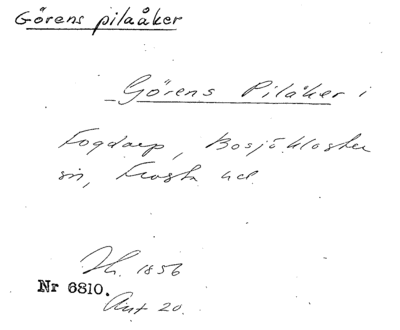 Görens pilaåker
Görens Pilåker i
Fogdarp, Bosjökloster
sn, Frosta hd.
Jh. 1856
Nr 6810.
Ant 20.